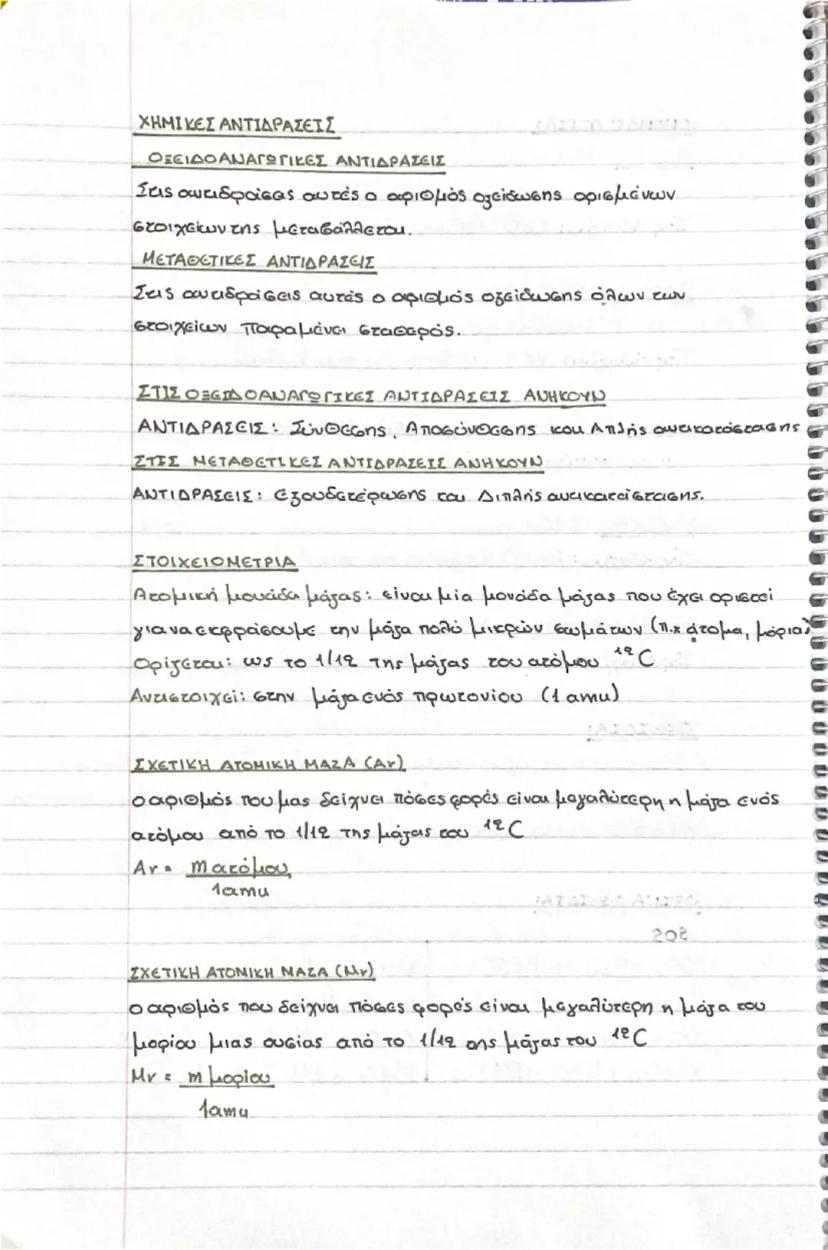 ΧΗΜΙΚΕΣ ΑΝΤΙΔΡΑΣΕΙΣ
ΟΞΕΙΔΟΑΝΑΓΩΓΙΚΕΣ ΑΝΤΙΔΡΑΣΕΙΣ
Στις αντιδράσεις αυτές ο αριθμός οξείδωσης ορισμένων
στοιχείων της μεταβάλλεται.
ΜΕΤΑΘΕΤΙΚΕΣ ΑΝΤΙΔΡΑΣΕΙΣ
Στις αντιδράσεις αυτές ο αριθμός οξείδωσης όλων των
στοιχείων παραμένει σταθερός.
ΣΤΙΣ ΟΞΕΙΔΟΑΝΑΓΩΓΙΚΕΣ ΑΝΤΙΔΡΑΣΕΙΣ ΑΝΗΚΟΥΝ
ΑΝΤΙΔΡΑΣΕΙΣ: Σύνθεσης, Αποσύνθεσης και Απλής αντικατάστασης
ΣΤΙΣ ΜΕΤΑΘΕΤΙΚΕΣ ΑΝΤΙΔΡΑΣΕΙΣ ΑΝΗΚΟΥΝ
ΑΝΤΙΔΡΑΣΕΙΣ: Εξουδετέρωσης και Διπλής αντικατάστασης.
ΣΤΟΙΧΕΙΟΜΕΤΡΙΑ
Ατομική μονάδα μάζας: είναι μία μονάδα μάζας που έχει οριστεί
για να εκφράσουμε την μάζα πολύ μικρών σωμάτων (π.χ άτομα, μόρια)
Ορίζεται: ως το 1/12 της μάζας του ατόμου ¹²C
Αντιστοιχεί: στην μάζα ενός πρωτονίου (1 amu)
ΣΧΕΤΙΚΗ ΑΤΟΜΙΚΗ ΜΑΖΑ (Ar)
ο αριθμός που μας δείχνει πόσες φορές είναι μεγαλύτερη η μάζα ενός
ατόμου από το 1/12 της μάζας του ¹²C
Ar = m ατόμου
1amu
ΣΧΕΤΙΚΗ ΑΤΟΜΙΚΗ ΜΑΖΑ (Mr)
ο αριθμός που δείχνει πόσες φορές είναι μεγαλύτερη η μάζα του
μορίου μιας ουσίας από το 1/12 της μάζας του ¹²C
Mr = m μορίου
1amu